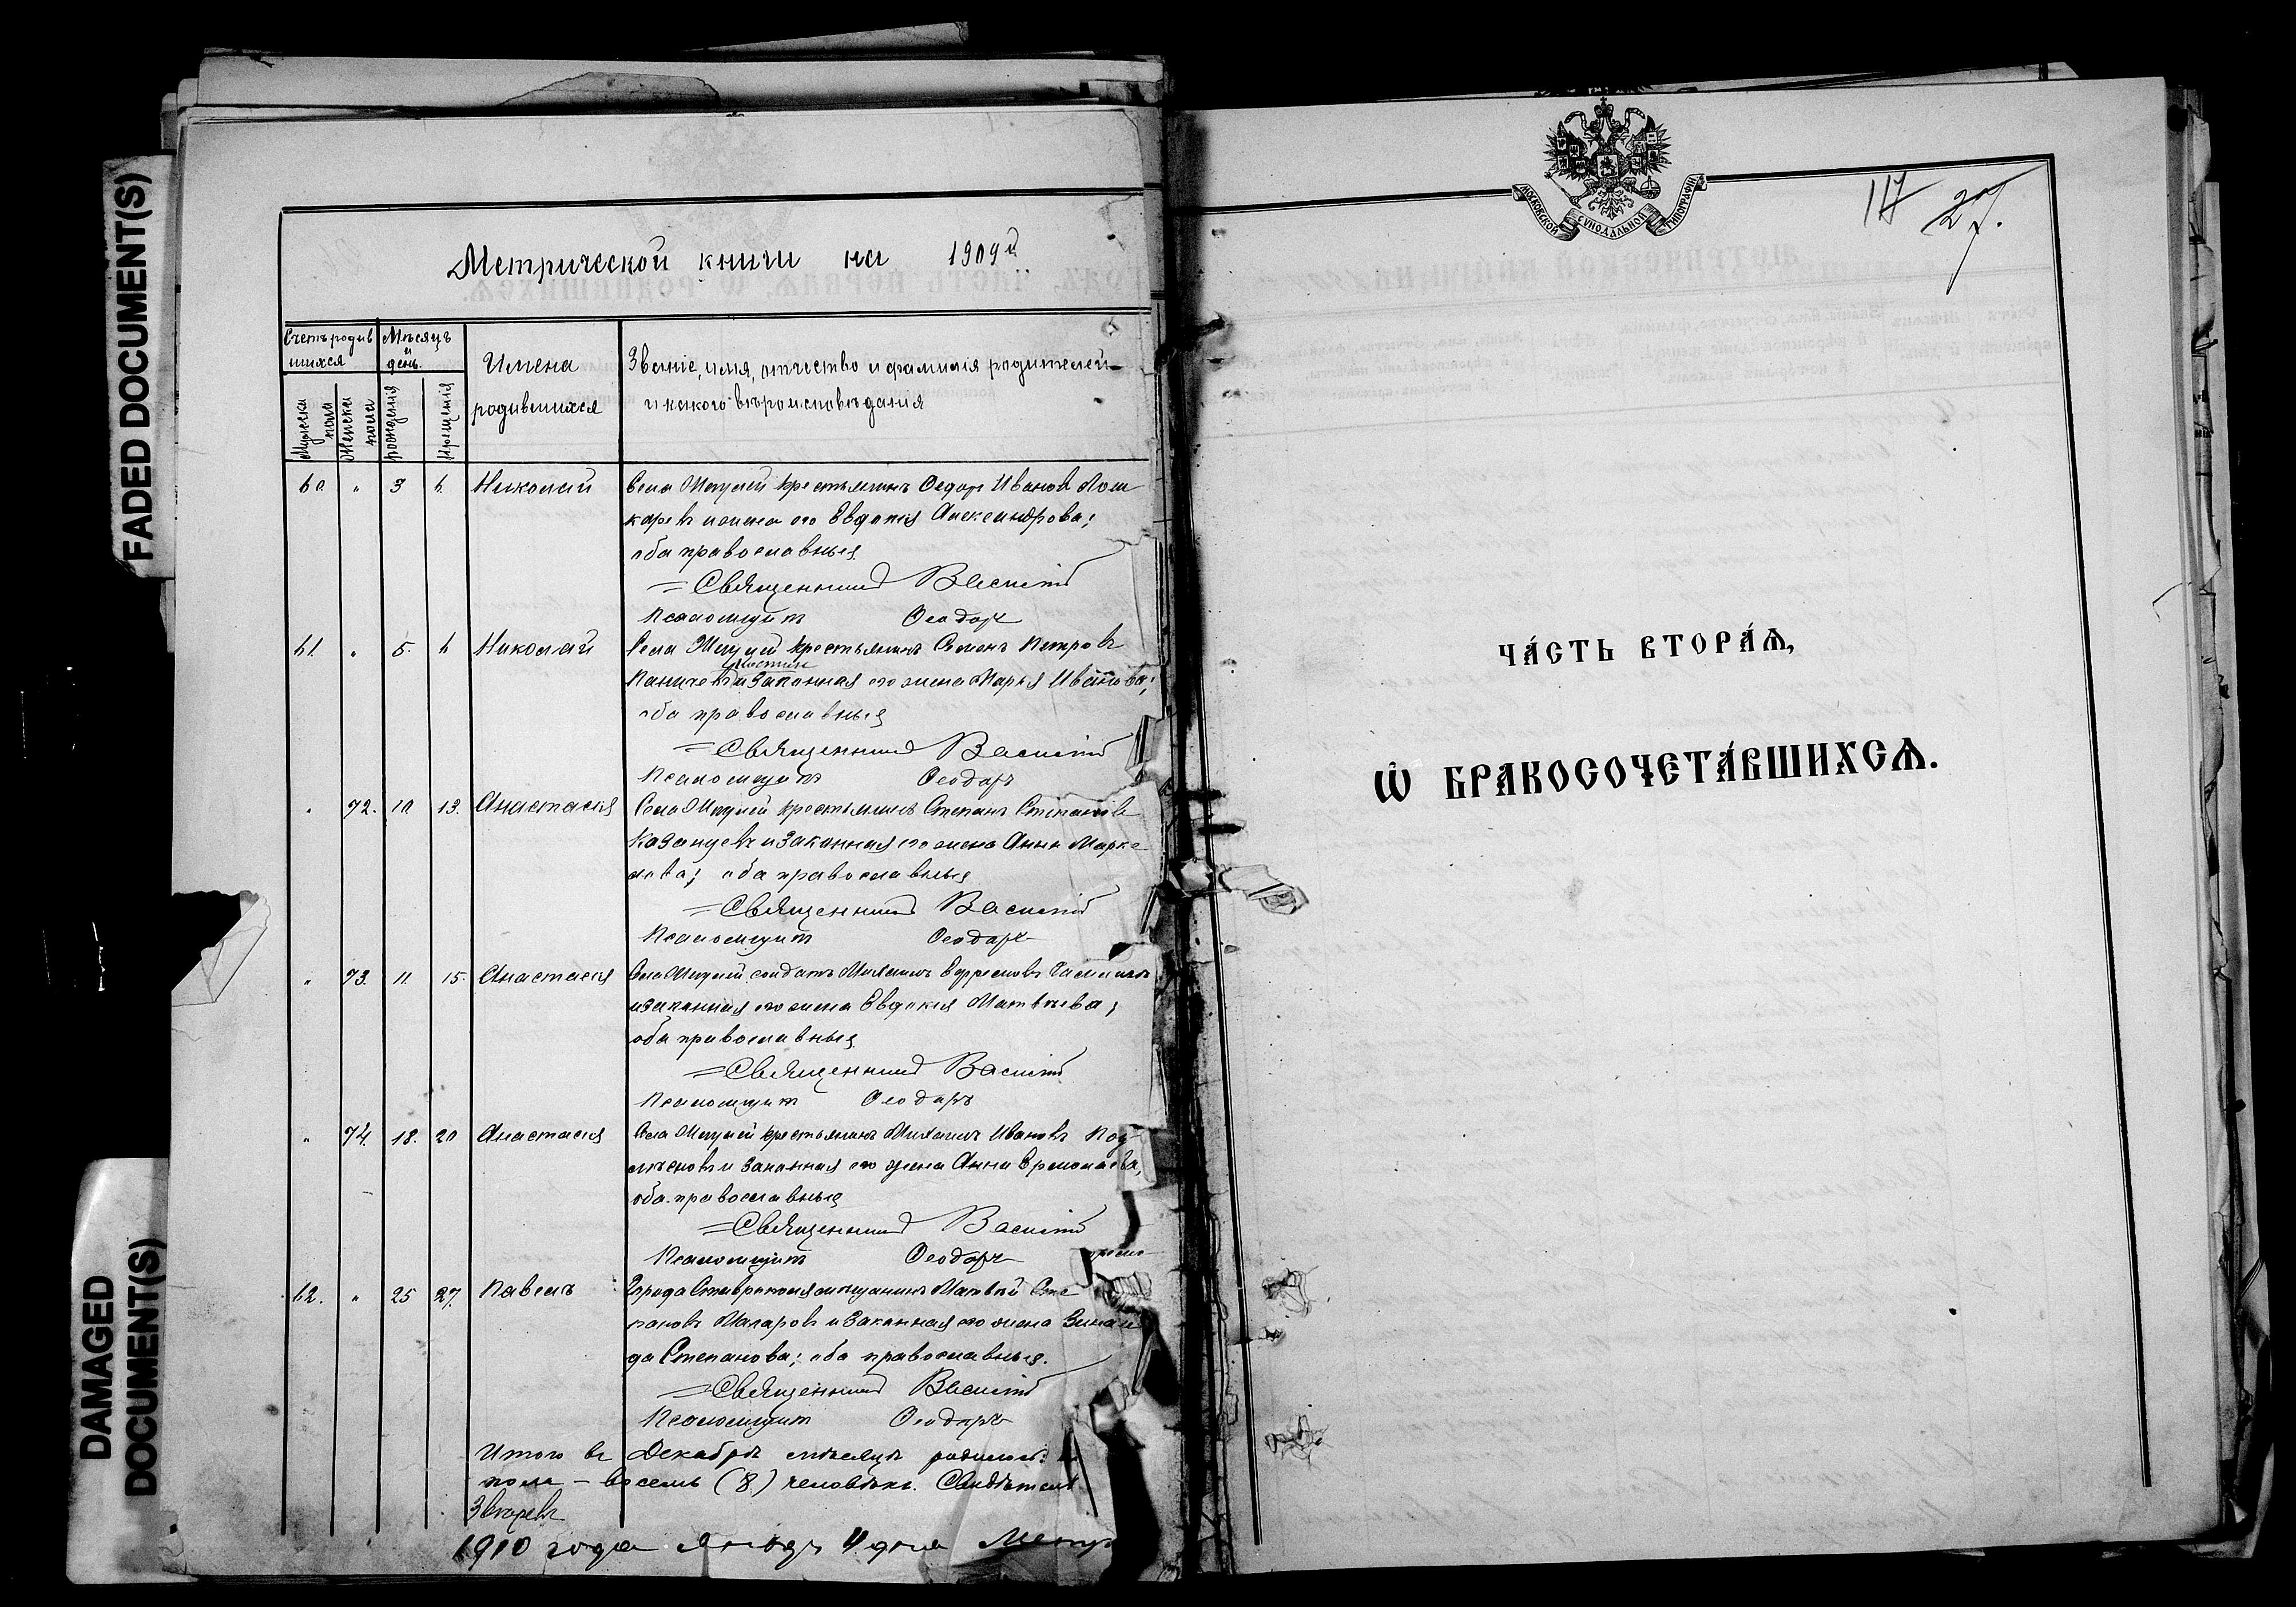 FADED DOCUMENT(S)
DAMAGED
DOCUMENT(S)
Метрической книги на 1909й
Счетъ родив
шихся
Мѣсяцъ
и
день.
Мужеска
пола
Женска
пола
рожденія
крещенія
Имена
родившихся
Званіе, имя, отчество и фамилія родителей
и какого вѣроисповѣданія
60. " 3 6. Николай Села крестьянинъ Ѳедоръ Ивановъ Лош
каревъ и жена его Евдокія Александрова;
оба православные
Священникъ Василій
Псаломщикъ Ѳеодоръ
61. " 5. 6 Николай Села крестьянинъ Семенъ Петровъ
и законная его жена Марья Иванова;
оба православные
Священникъ Василій
Псаломщикъ Ѳеодоръ
" 72. 10. 13. Анастасія Села крестьянинъ Степанъ Степановъ
Казанцевъ и законная его жена Анна Марке
лова; оба православные
Священникъ Василій
Псаломщикъ Ѳеодоръ
" 73. 11. 15. Анастасія Села солдатъ Михаилъ
и законная его жена Евдокія Матвѣева;
оба православные
Священникъ Василій
Псаломщикъ Ѳеодоръ
" 74. 18. 20 Анастасія Села крестьянинъ Михаилъ Ивановъ
и законная его жена Анна Ермолаева,
оба православные
Священникъ Василій
Псаломщикъ Ѳеодоръ
62. " 25 27. Павелъ Города Ставрополя мѣщанинъ Матвѣй Сте
пановъ Макаровъ и законная его жена Зинаи
да Степанова; оба православные.
Священникъ Василій
Псаломщикъ Ѳеодоръ
Итого въ Декабрѣ мѣсяцѣ родилось:
пола – восемь (8) человѣкъ.
1910 года дня
МОСКОВСКОЙ СѴНОДАЛЬНОЙ ТИПОГРАФІИ
117 27.
ЧА́СТЬ ВТОРА́Ѧ,
Ѡ҆ БРАКОСОЧЕТА́ВШИХСѦ.